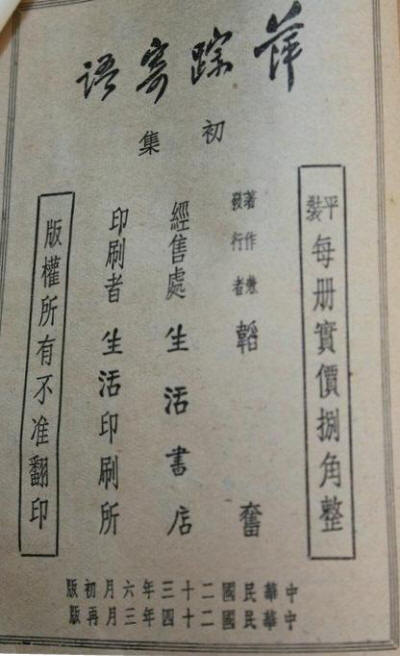 萍踪寄语
初集
平裝每册實價捌角整
著作兼
發行者
韜奮
經售處 生活書店
印刷者 生活印刷所
版權所有不准翻印
中華民國二十三年六月初版
中華民國二十四年三月再版